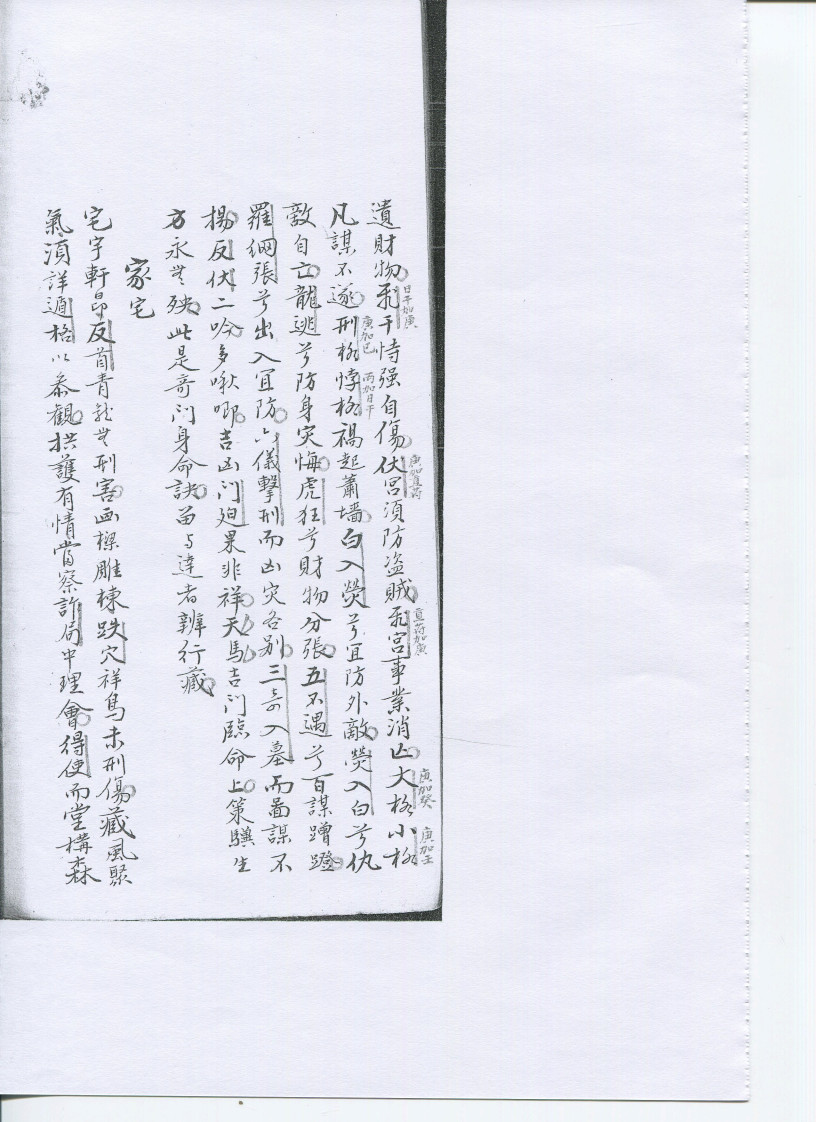 遺財物飛干恃强自傷伏宮須防盗賊飛宮事業消亡大格小格
日干加庚
庚加直符
直符加庚
庚加癸
庚加壬
凡謀不遂刑格悖格禍起蕭墙白入熒兮宜防外敵熒入白兮仇
庚加己
丙加日干
敵自亡龍逃兮防身灾悔虎狂兮財物分張五不遇兮百謀蹭蹬
羅網張兮出入宜防六儀擊刑而凶灾各别三奇入墓而啚謀不
揚反伏二吟多啾唧吉凶门廹果非祥天馬吉门臨命上策驥生
方永㞷殃此是奇门身命訣畄与達者辨行藏
家宅
宅宇軒昻反首青龍㞷刑害画樑雕棟跌穴祥鳥未刑傷藏風聚
氣須詳遁格以叅觀拱護有情當察詐局中理會得使而堂構森